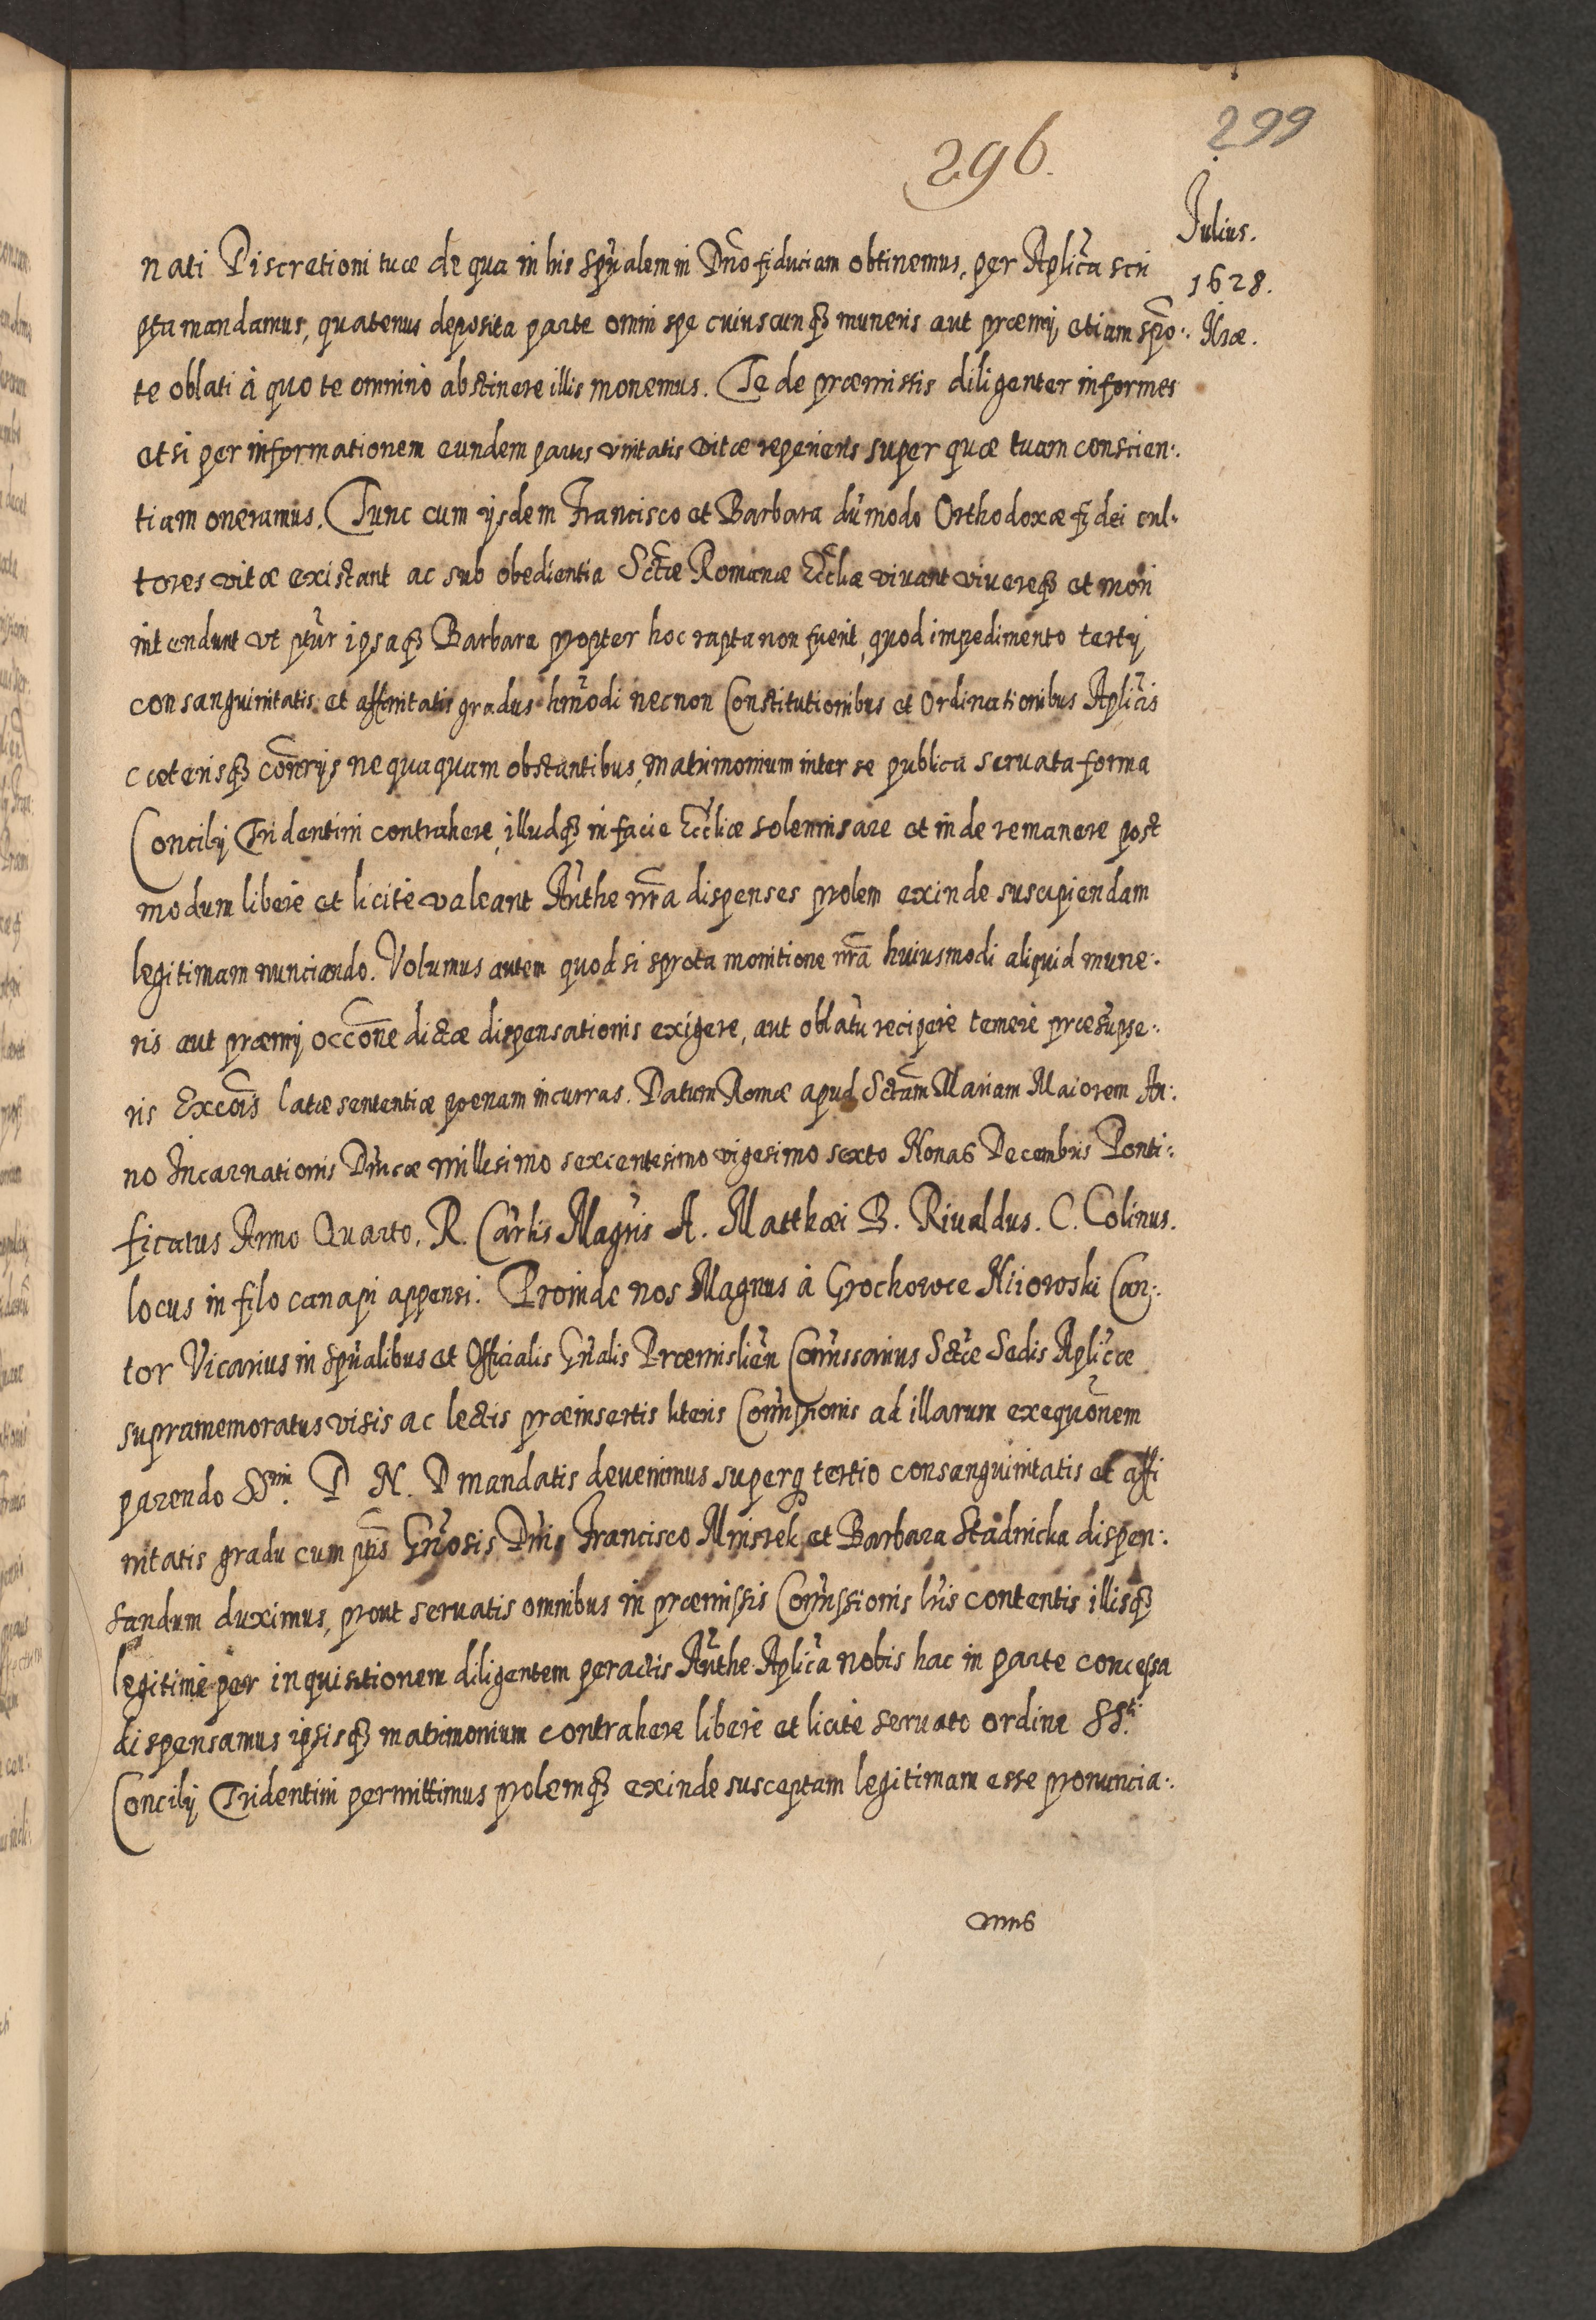 299
296.
Julius.
1628.
nati Discretioni tuæ de qua in his Spu͠alem in Dn͠o fiduciam obtinemus, per Aplic͠a scri
pta mandamus, quatenus deposita parte omni spe cuiuscunq₃ muneris aut præmij, etiam spo͠:
te oblati à quo te omnino abstinere illis monemus. Te de præmissis diligenter informes
et si per informationem eundem partes vnitatis vitæ repereris super quæ tuam conscien:
tiam oneramus. Tunc cum ijsdem Francisco et Barbara du͠modo Orthodoxæ fidei cul:
tores vitæ existant ac sub obedientia Sctæ͠ Romanæ Eccli͠æ vivant vivereq₃ et mori
intendunt vt ptu͠r ipsaq₃ Barbara propter hoc rapta non fuerit, quod impedimento tertij
consanguinitatis et affinitatis gradus hm͠odi necnon Constitutionibus et Ordinationibus Aplic͠is
cæterisq₃ con͠rijs nequaquam obstantibus, matrimonium inter se publica seruata forma
Concilij Tridentini contrahere, illudq₃ in facie Eccli͠æ solemnisare et inde remanere post
modum liberè et licitè valeant Au͠the nr͠a dispenses prolem exinde suscipiendam
legitimam nunciando. Volumus autem quod si spreta monitione nr͠a huiusmodi aliquid mune:
ris aut præmij occo͠ne dictæ dispensationis exigere, aut oblatu͠ recipere temerè præsu͠pse:
ris Excoi͠s latæ sententiæ poenam incurras. Datum Romæ apud Sct͠am Mariam Maiorem An:
no Incarnationis Dn͠icæ millesimo sexcentesimo vigesimo sexto Nonas Decembris Ponti:
ficatus Anno Quarto. R. Car͠lis Magn͠is A. Matthæi B. Riualdus. C. Colinus.
locus in filo canapi appensi. Proinde nos Magnus à Grochowce Kiiowski Can:
tor Vicarius in Spu͠alibus et Officialis Gn͠alis Præmislien͠ Com͠issarius Sctæ͠ Sedis Aplic͠æ
supramemoratus visis ac lectis præinsertis literis Com͠issionis ad illarum exequo͠nem
parendo SSmi. D N. D mandatis devenimus superq₃ tertio consanguinitatis et affi
nitatis gradu cum pt͠is Gn͠osis Dn͠is Francisco Mniszek et Barbara Stadnicka dispen:
sandum duximus, prout seruatis omnibus in præmissis Com͠issionis lr͠is contentis illisq₃
legitimè per inquisitionem diligentem peractis Au͠the Aplic͠a nobis hac in parte concessa
dispensamus ipsisq₃ matrimonium contrahere liberè et licitè seruato ordine SSti.
Concilij Tridentini permittimus prolemq₃ exinde susceptam legitimam esse pronuncia: